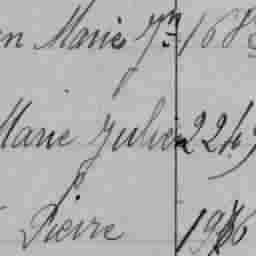 Marie Jn 168
Marie Julien 2249
Pierre 1986